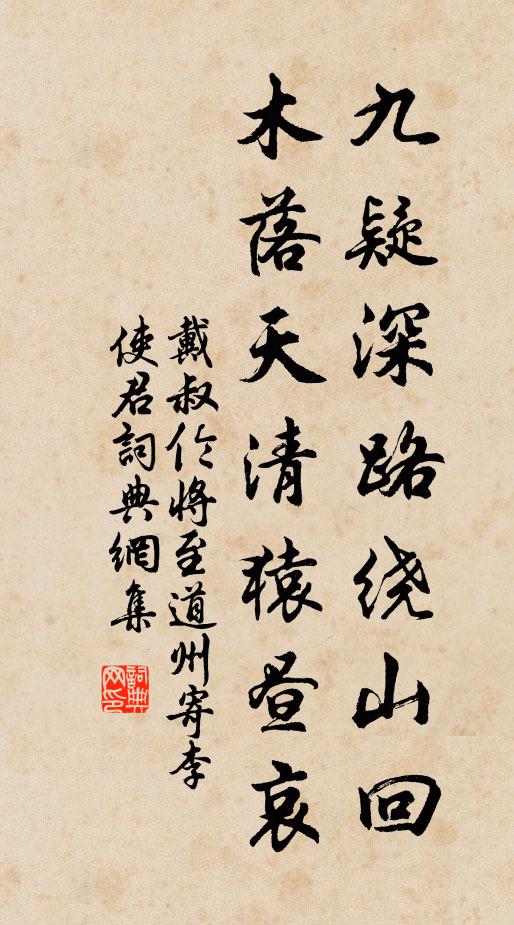 九疑深路绕山回
木落天清猿昼哀
戴叔伦将至道州寄李
使君詞典網集
詞典
网印